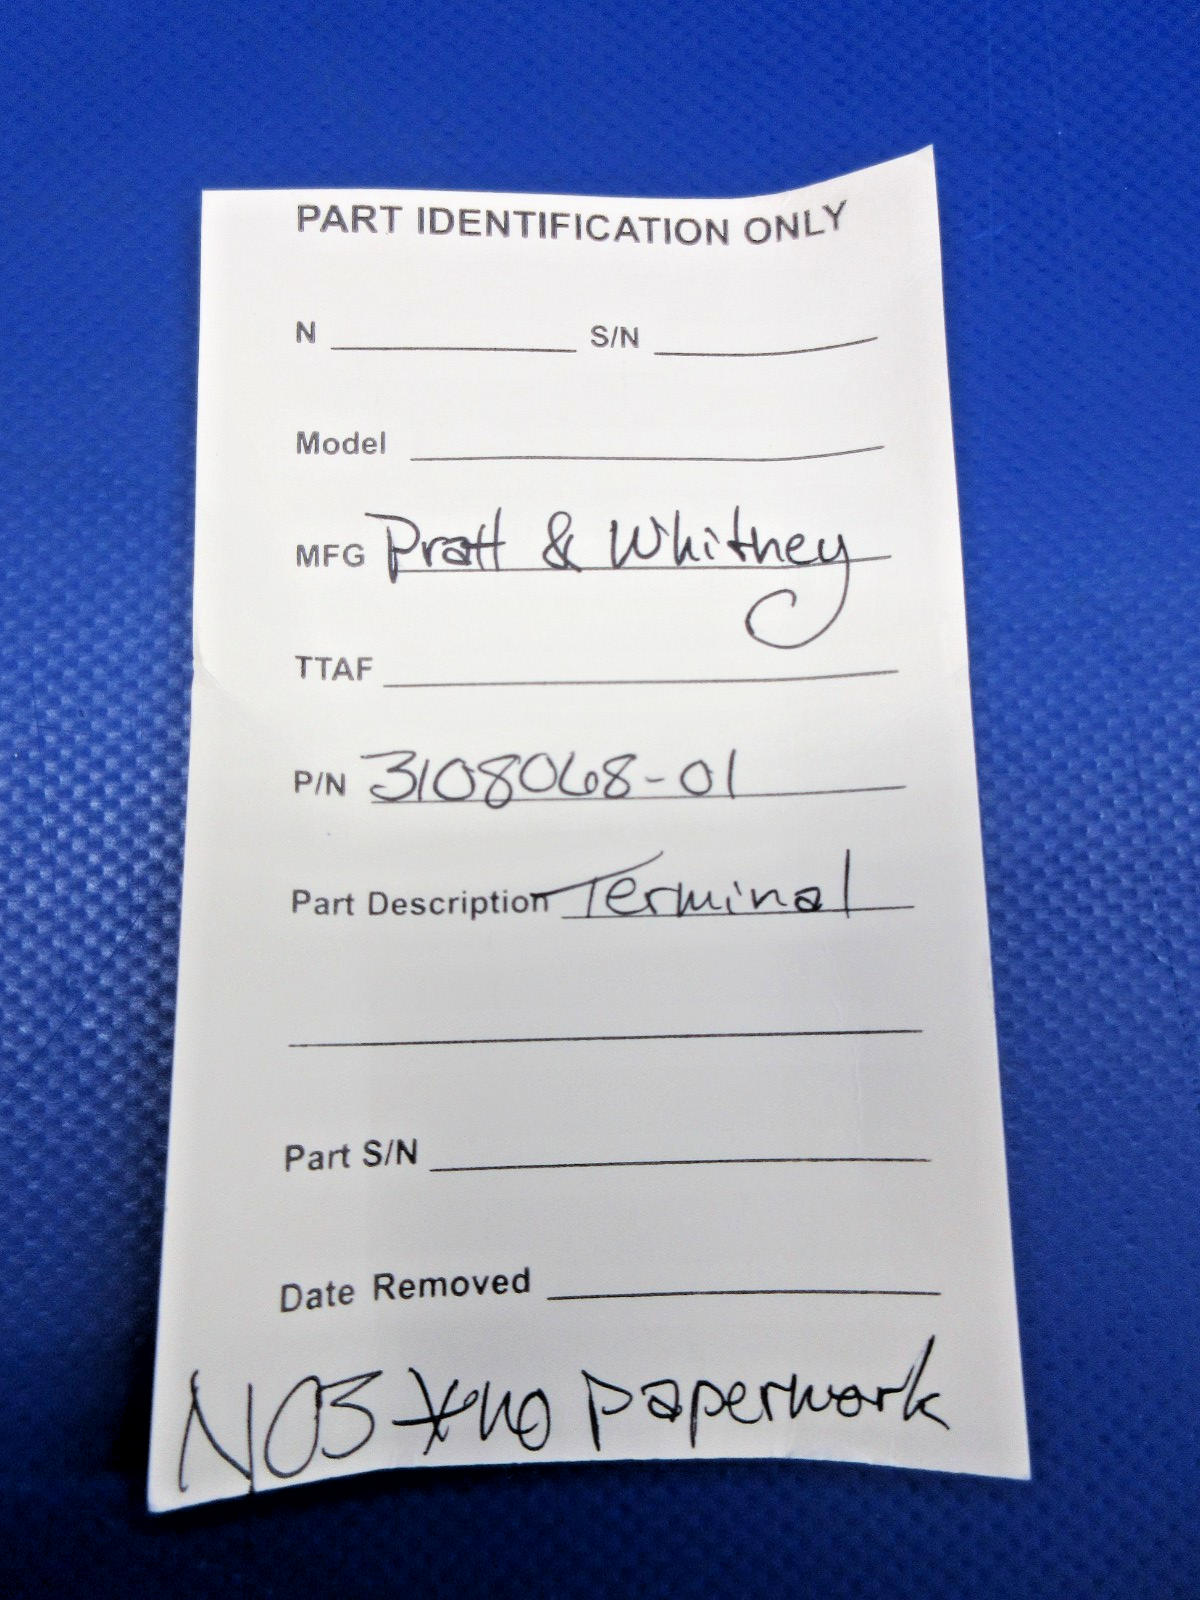 PART IDENTIFICATION ONLY
N S/N
Model
MFG Pratt & Whitney
TTAF
P/N 3108068-01
Part Description Terminal
Part S/N
Date Removed
NOS *no paperwork